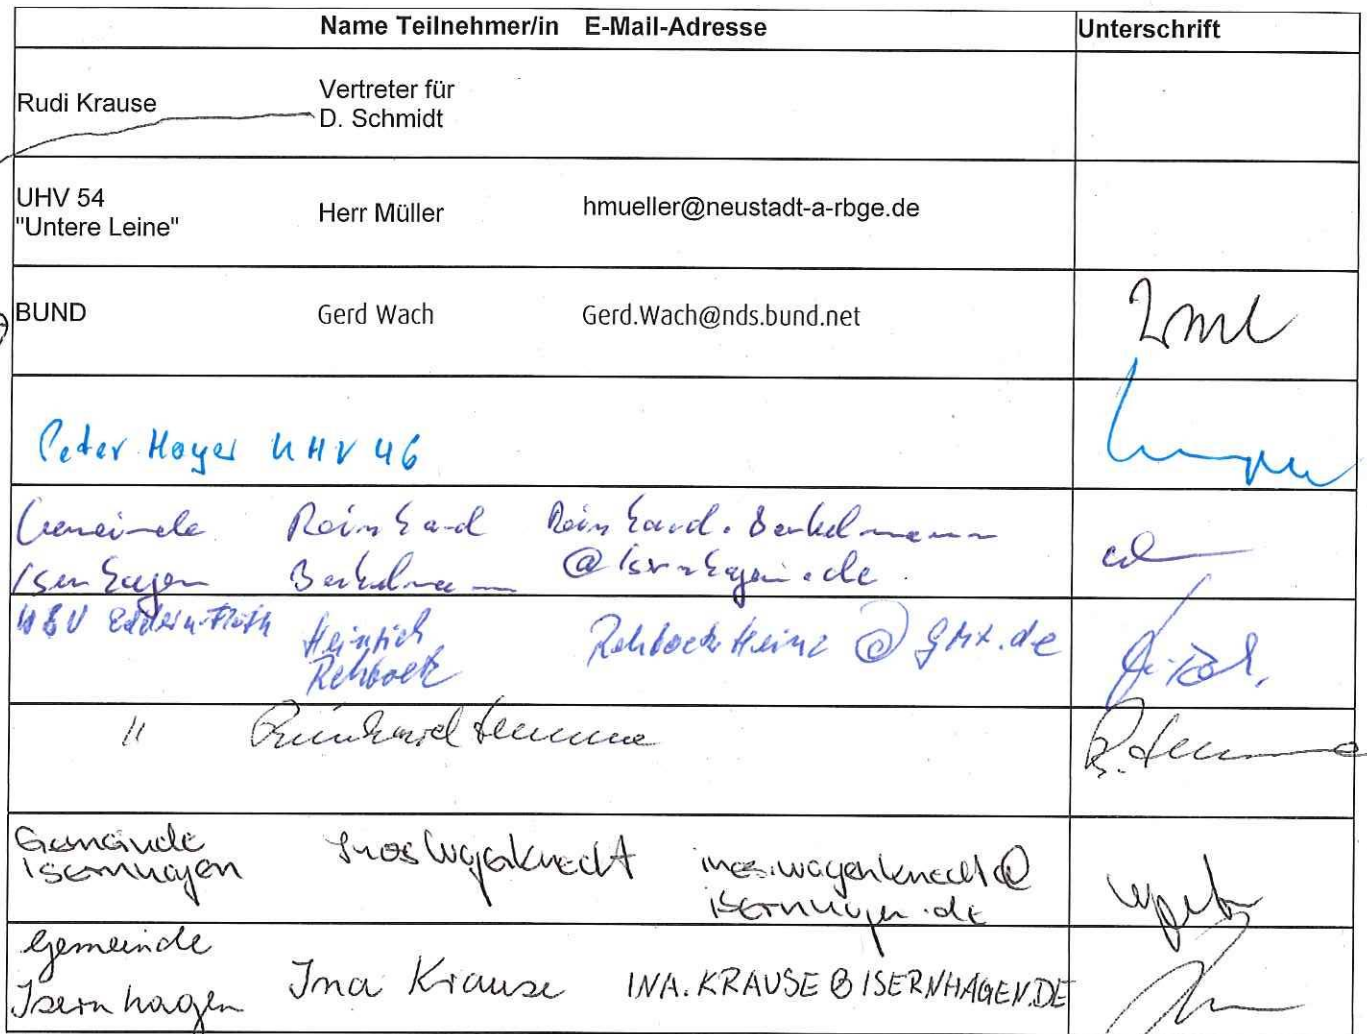 Name Teilnehmer/in E-Mail-Adresse Unterschrift
Rudi Krause
Vertreter für
D. Schmidt
UHV 54
"Untere Leine"
Herr Müller
hmueller@neustadt-a-rbge.de
BUND Gerd Wach Gerd.Wach@nds.bund.net
Peter Hoyer UHV 46
Gemeinde Reinhard Reinhard.Benkelmann
Isernhagen Benkelmann @isernhagen.de
Heinrich
Rehbock
RehbockHeinz@gmx.de
" Reinhard
Gemeinde
Isernhagen
Ines Wagenknecht
ines.wagenknecht@
isernhagen.de
Gemeinde
Isernhagen
Ina Krause INA.KRAUSE@ISERNHAGEN.DE